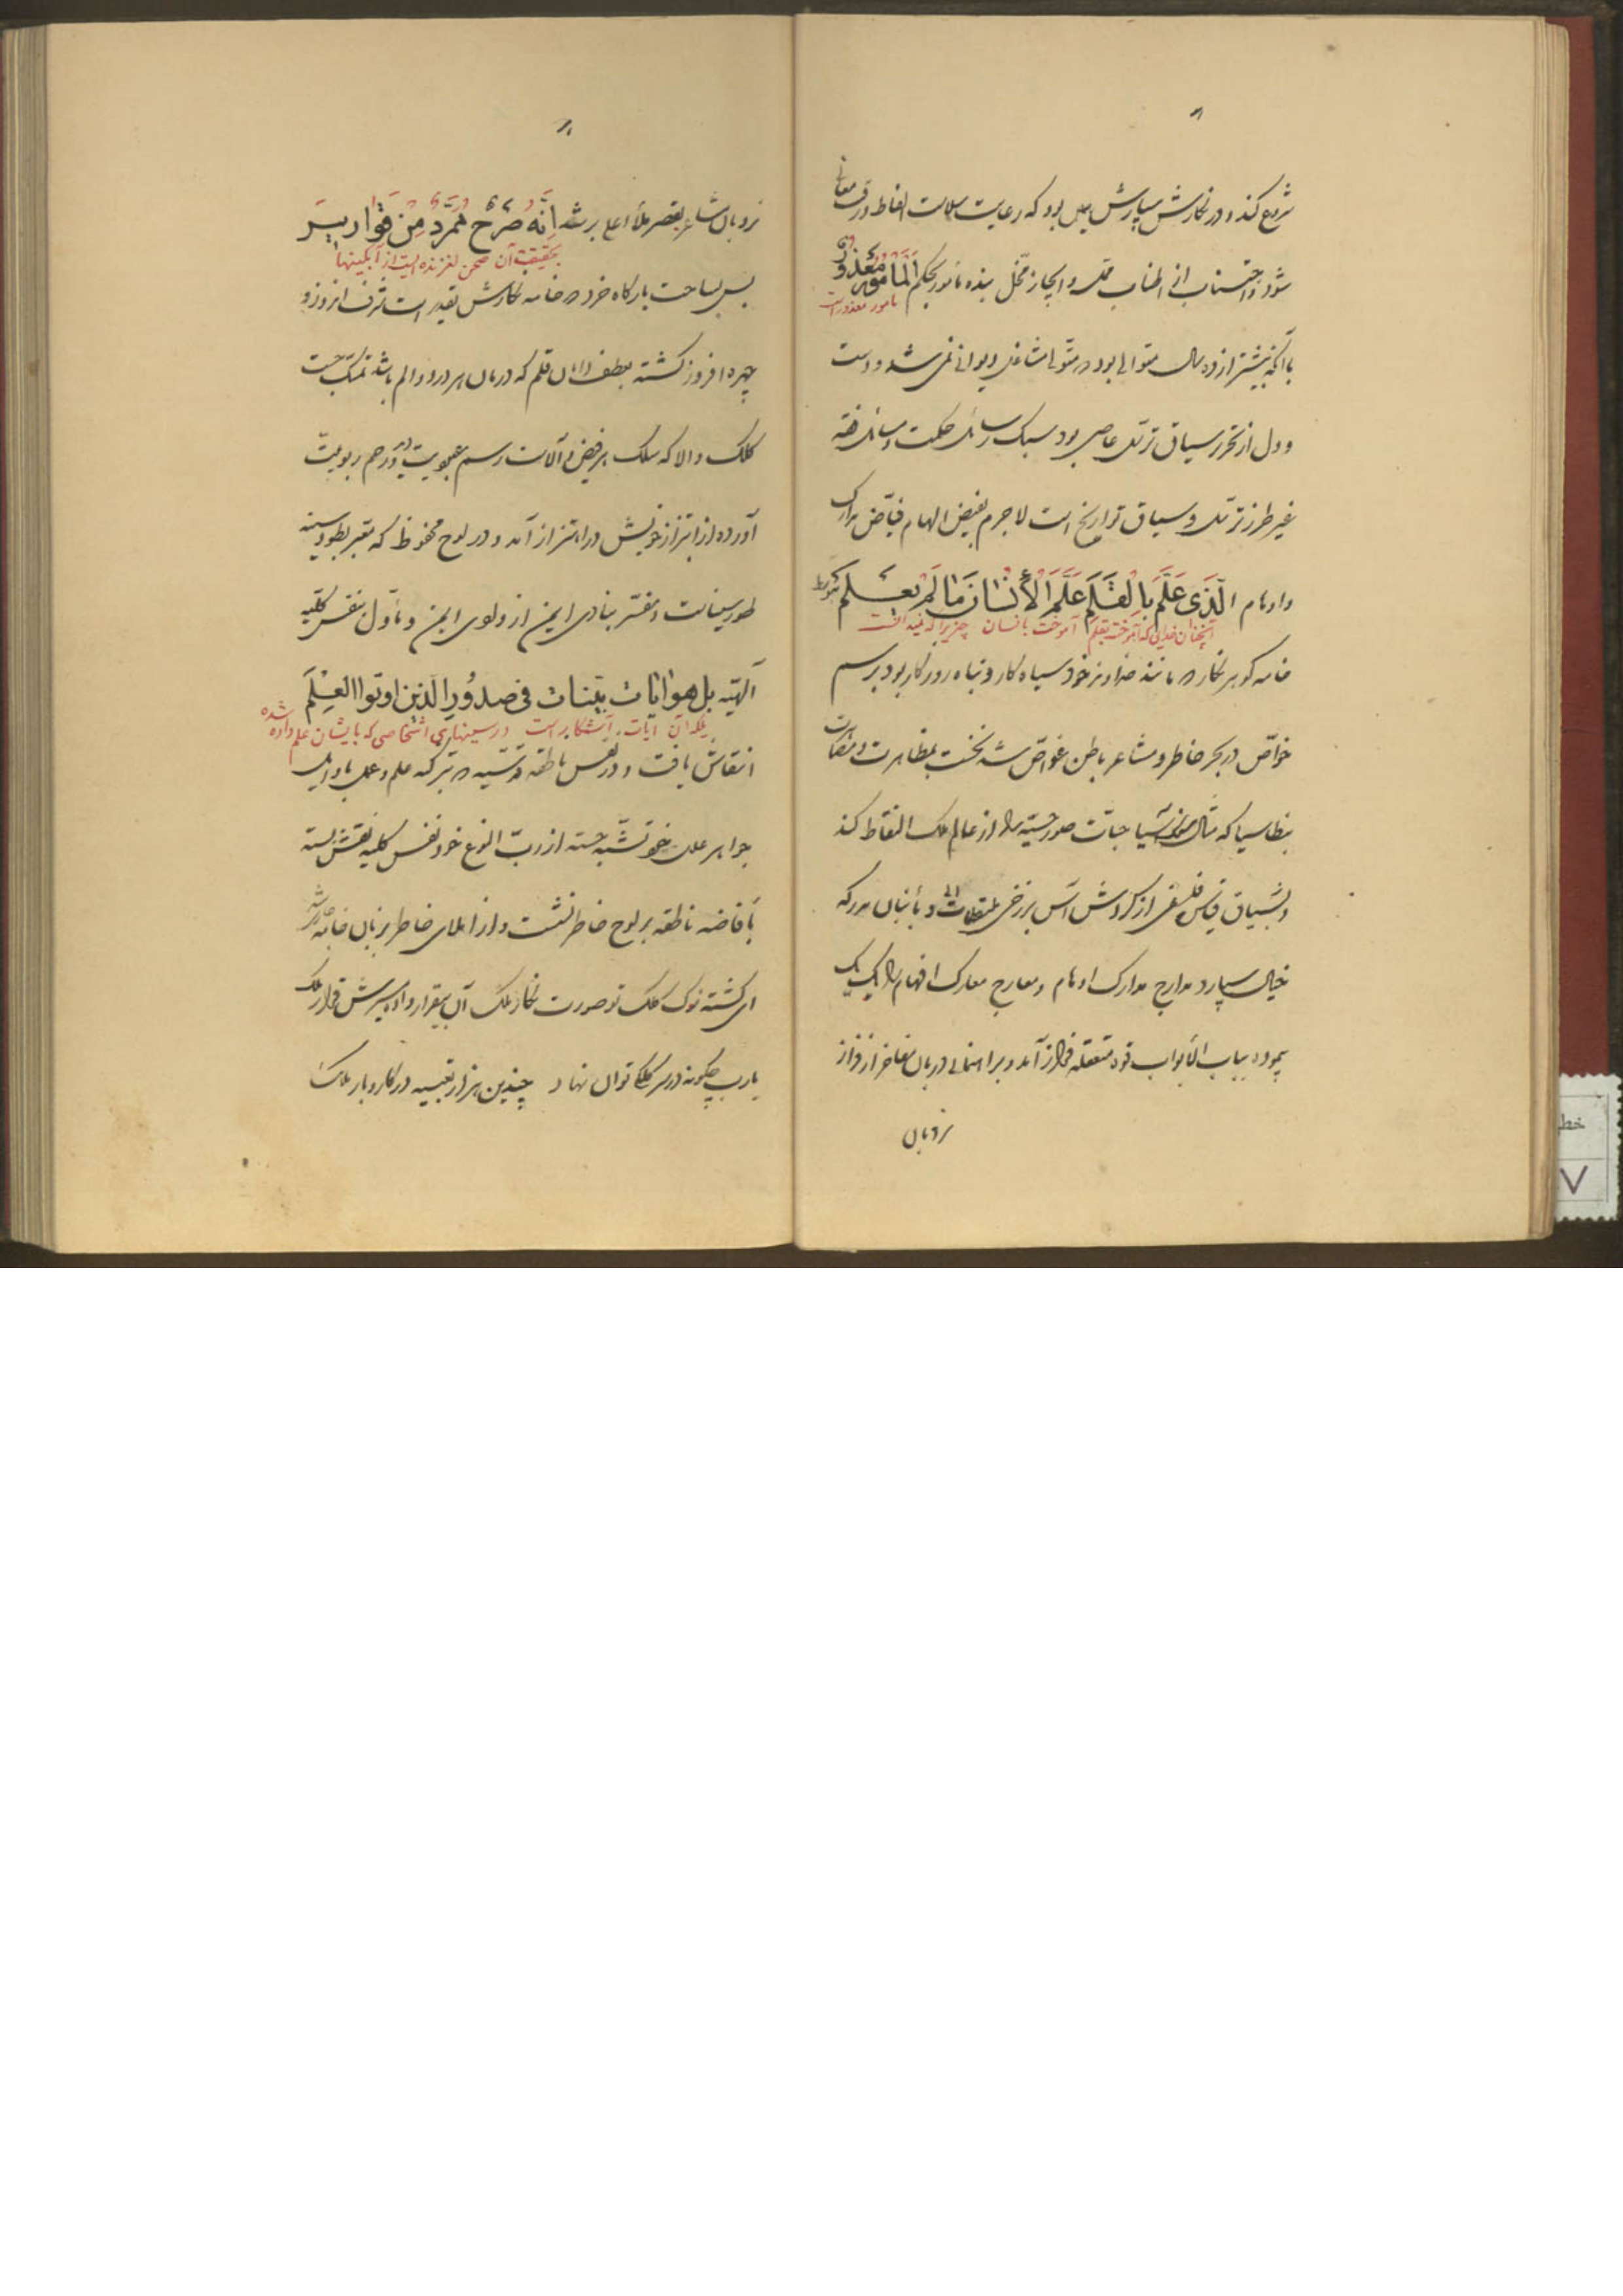 شروع کند و در نگارش سپارش بود که رعایت سلامت الفاظ و رقت معانی
شود و اجتناب از اطناب ممل و ایجاز مخل بنده مأمور بحکم اَلْمَأمُورُ مَعْذُورٌ
مأمور معذور است
با آنکه بیشتر از ده سال متوالی بود که متولی مشاغل دیوانی نمی شد و دست
و دل از تحریر سیاق ترسل عاصی بود سبک رسائل حکمت و مسائل فقه
غیر طرز ترسل و سیاق تواریخ است لاجرم بفیض الهام فیاض مدارک
و اوهام الَّذی عَلَّمَ بِالْقَلَمِ عَلَّمَ الْأِنْسانَ مَا لَمْ یَعْلَمْ
آنچنان خدائی که آموخت بقلم آموخت بانسان چیزیرا که نمیدانست
خامه گوهر نگار که مانند خداوند خود سیاه کار و تباه روزگار بود برسم
خواص در بحر خاطر و مشاعر باطن غواص شد نخست بمظاهرت
بنطاسیا که صور حسیه را از عالم ملک التقاط کند
خیال سپارد مدارج مدارک اوهام و معارج معارک افهام را یک یک
پیموده بباب الابواب قوه متعقله فراز آمد و براهنمائی دربان مفاخر از فراز
نردبان
نردبان مشاعر بقصر ملأ اعلی برشد اِنَّهُ صَرْحٌ مُمَرَّدٌ مِنْ قَوٰاریرَ
بحقیقت آن صحن لغزنده ایست از آبگینها
پس بساحت بارگاه خرد که خامه نگارش تقدیر است شرف اندوز و
چهره افروز گشته بعطف دامان قلم که درمان هر درد و الم باشد تمسک جست
کلک والا که سلک بر فیض و آلاست رسم عبودیت
آورده از ابتزاز خویش در اهتزاز آمد و در لوح محفوظ که معبر بطور سینه
طور سیناست و مفسر بنادی ایمن از وادی ایمن و مأول بنفس کلیه
آلهیّه بل هو ایات بیّنات فی صدُورِ الَّذین اوتوا العِلْمَ
بلکه آن آیات آشکار است در سینهای اشخاصی که بایشان علم داده شده
انتقاش یافت و در نفس ناطقه قدسیه که بترکه علم و عمل
جواهر علل تشبه جسته از رب النوع خود نفس کلیه نقش بسته
بافاضه ناطقه بر لوح خاطر نشست و از املای خاطر بزبان خامه
ای گشته نوک کلک تو صورت نگار ملک آن بیقرار داده سرش قرار ملک
یارب چگونه در سر کلکی توان نهاد چندین هزار تعبیه در کار و بار ملک
خط
۷